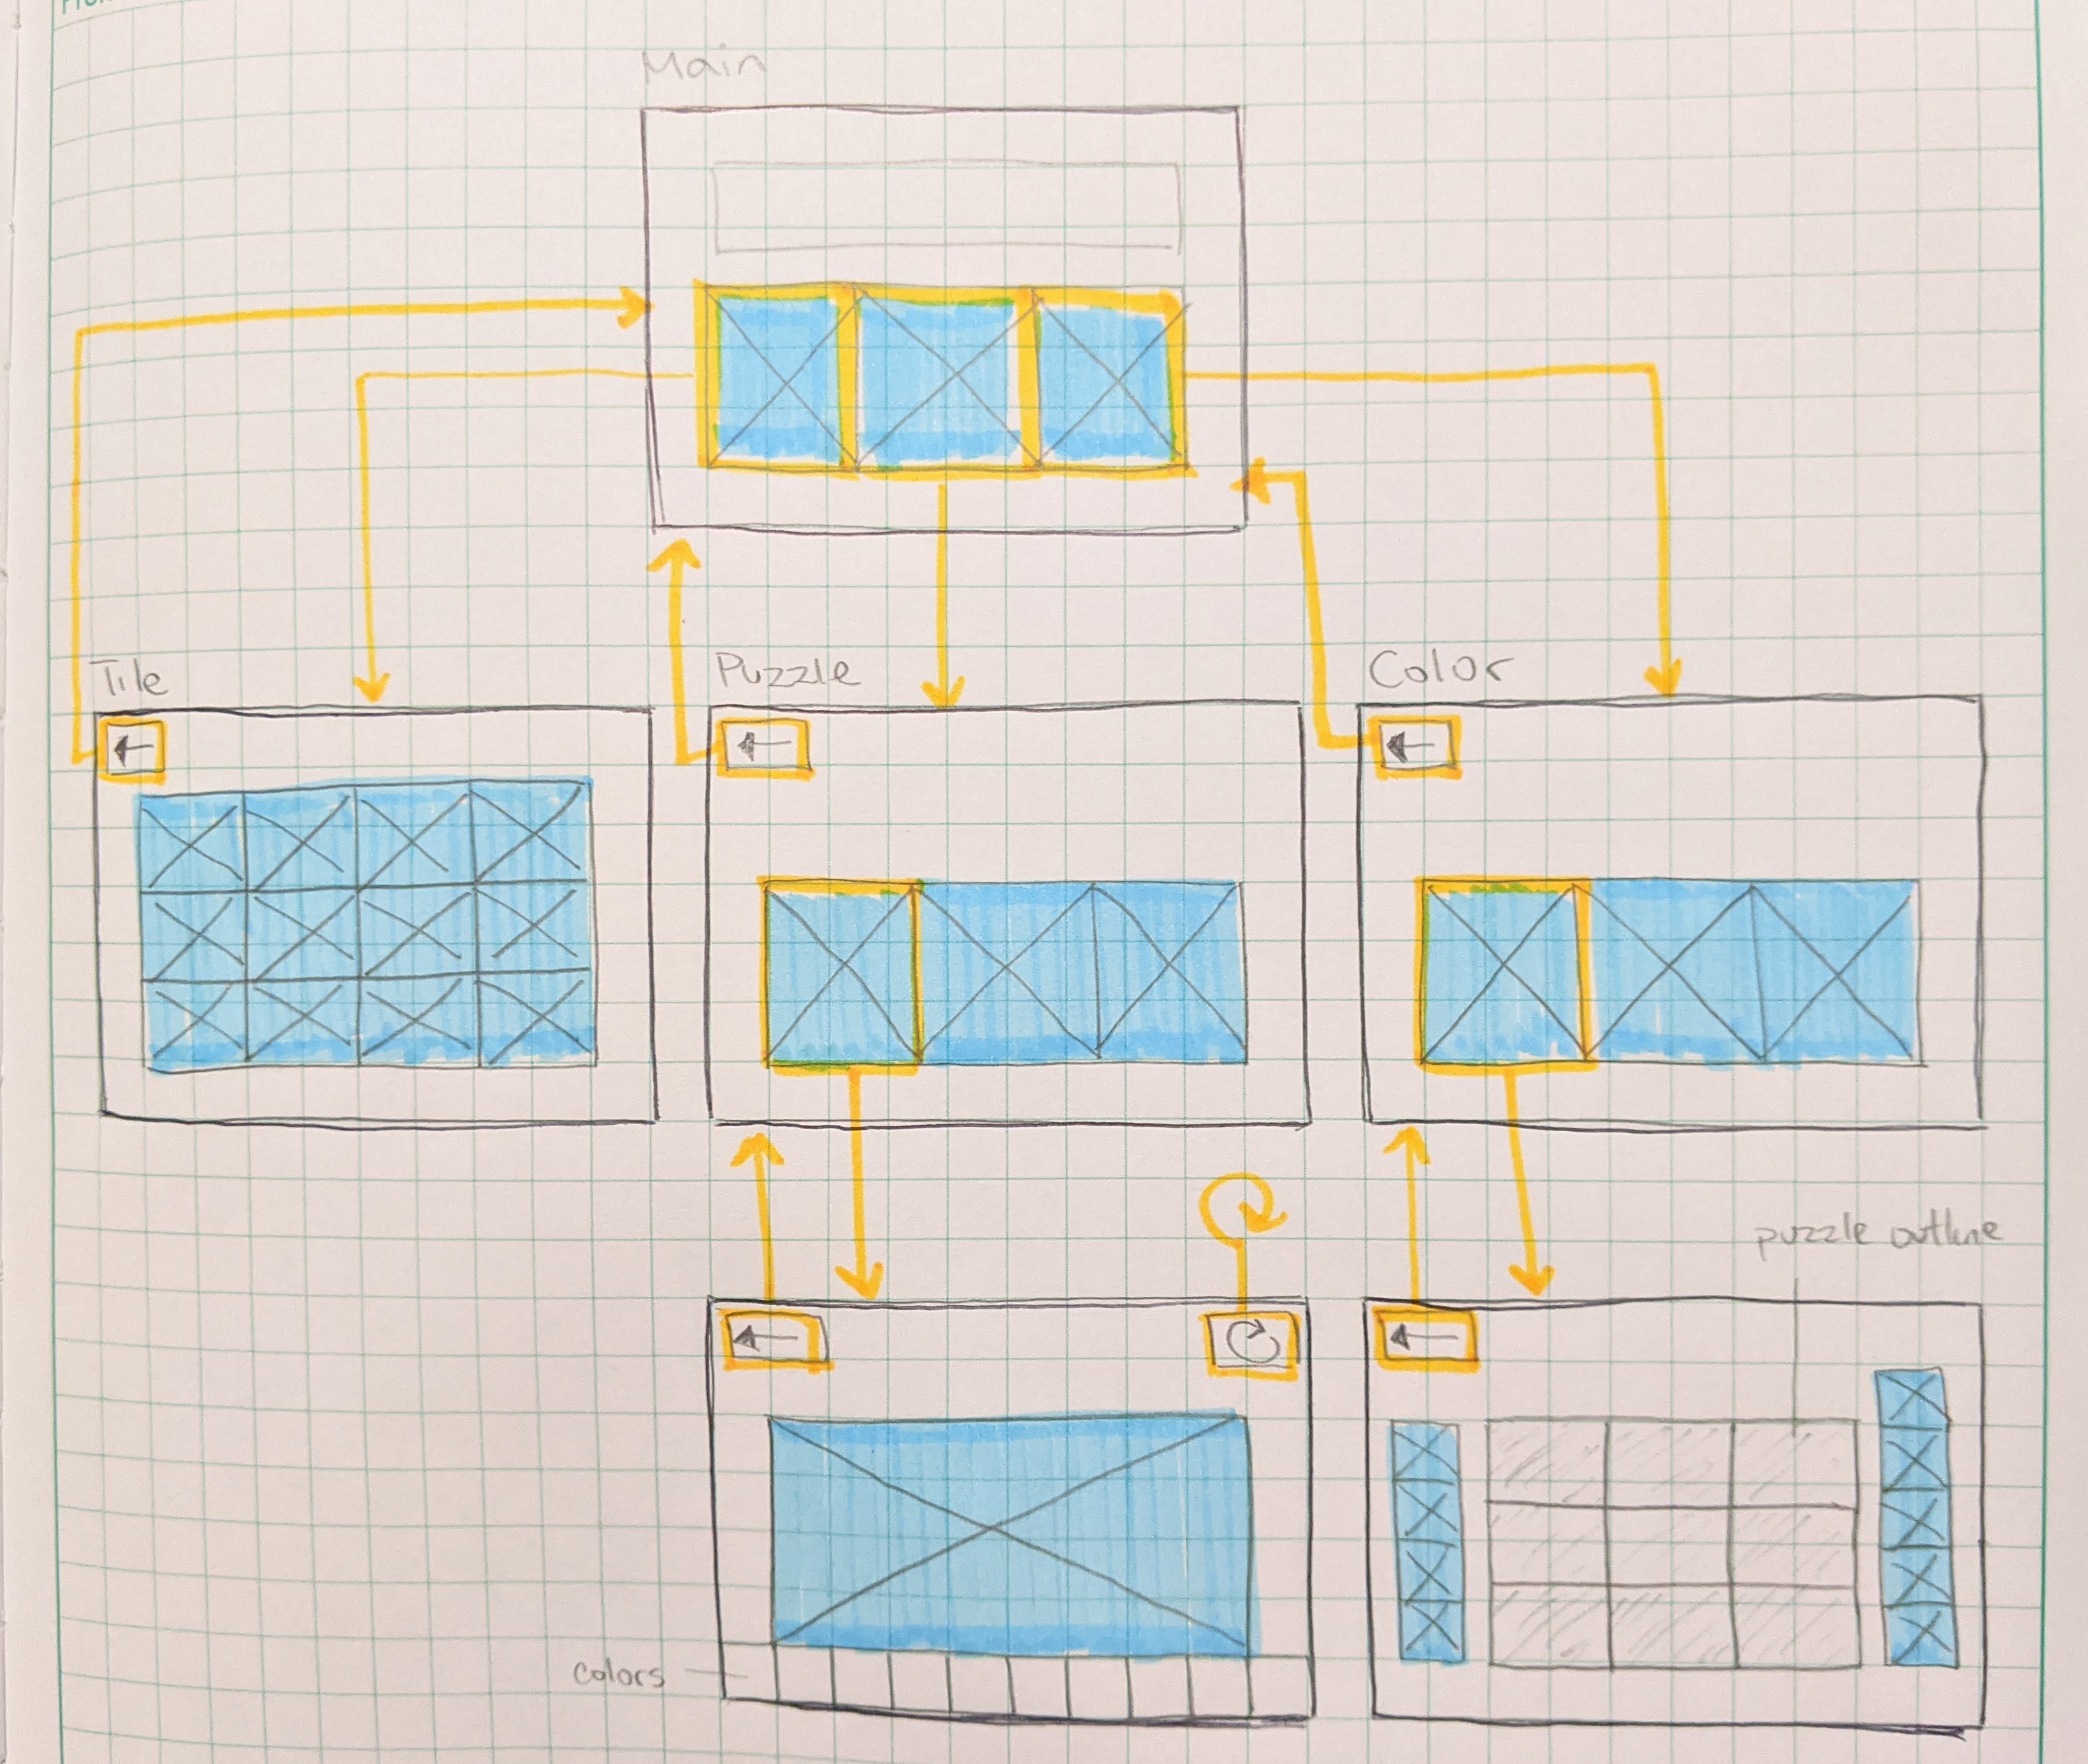 Main
Tile
Puzzle
Color
puzzle outline
colors